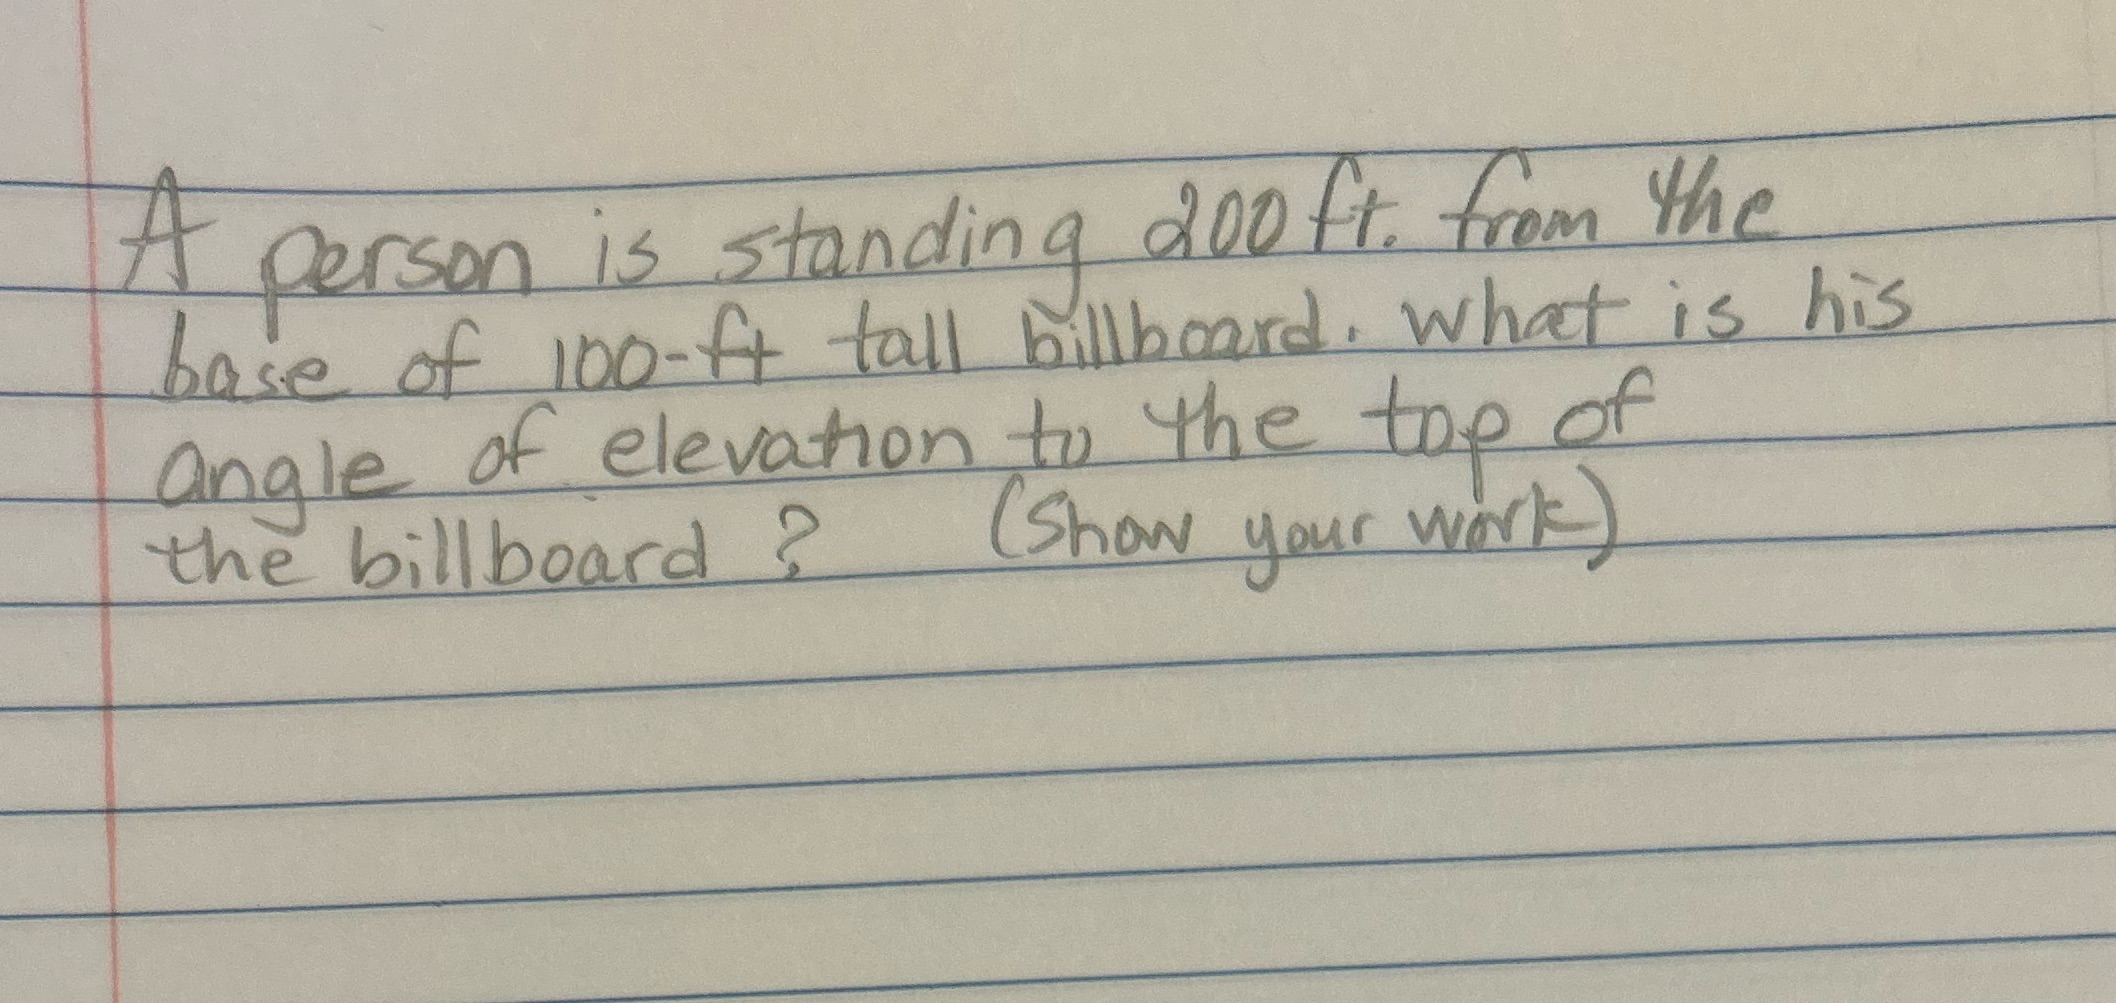 A person is standing 200 ft. from the
base of 100-ft tall billboard. What is his
angle of elevation to the top of
the billboard? (Show your work)